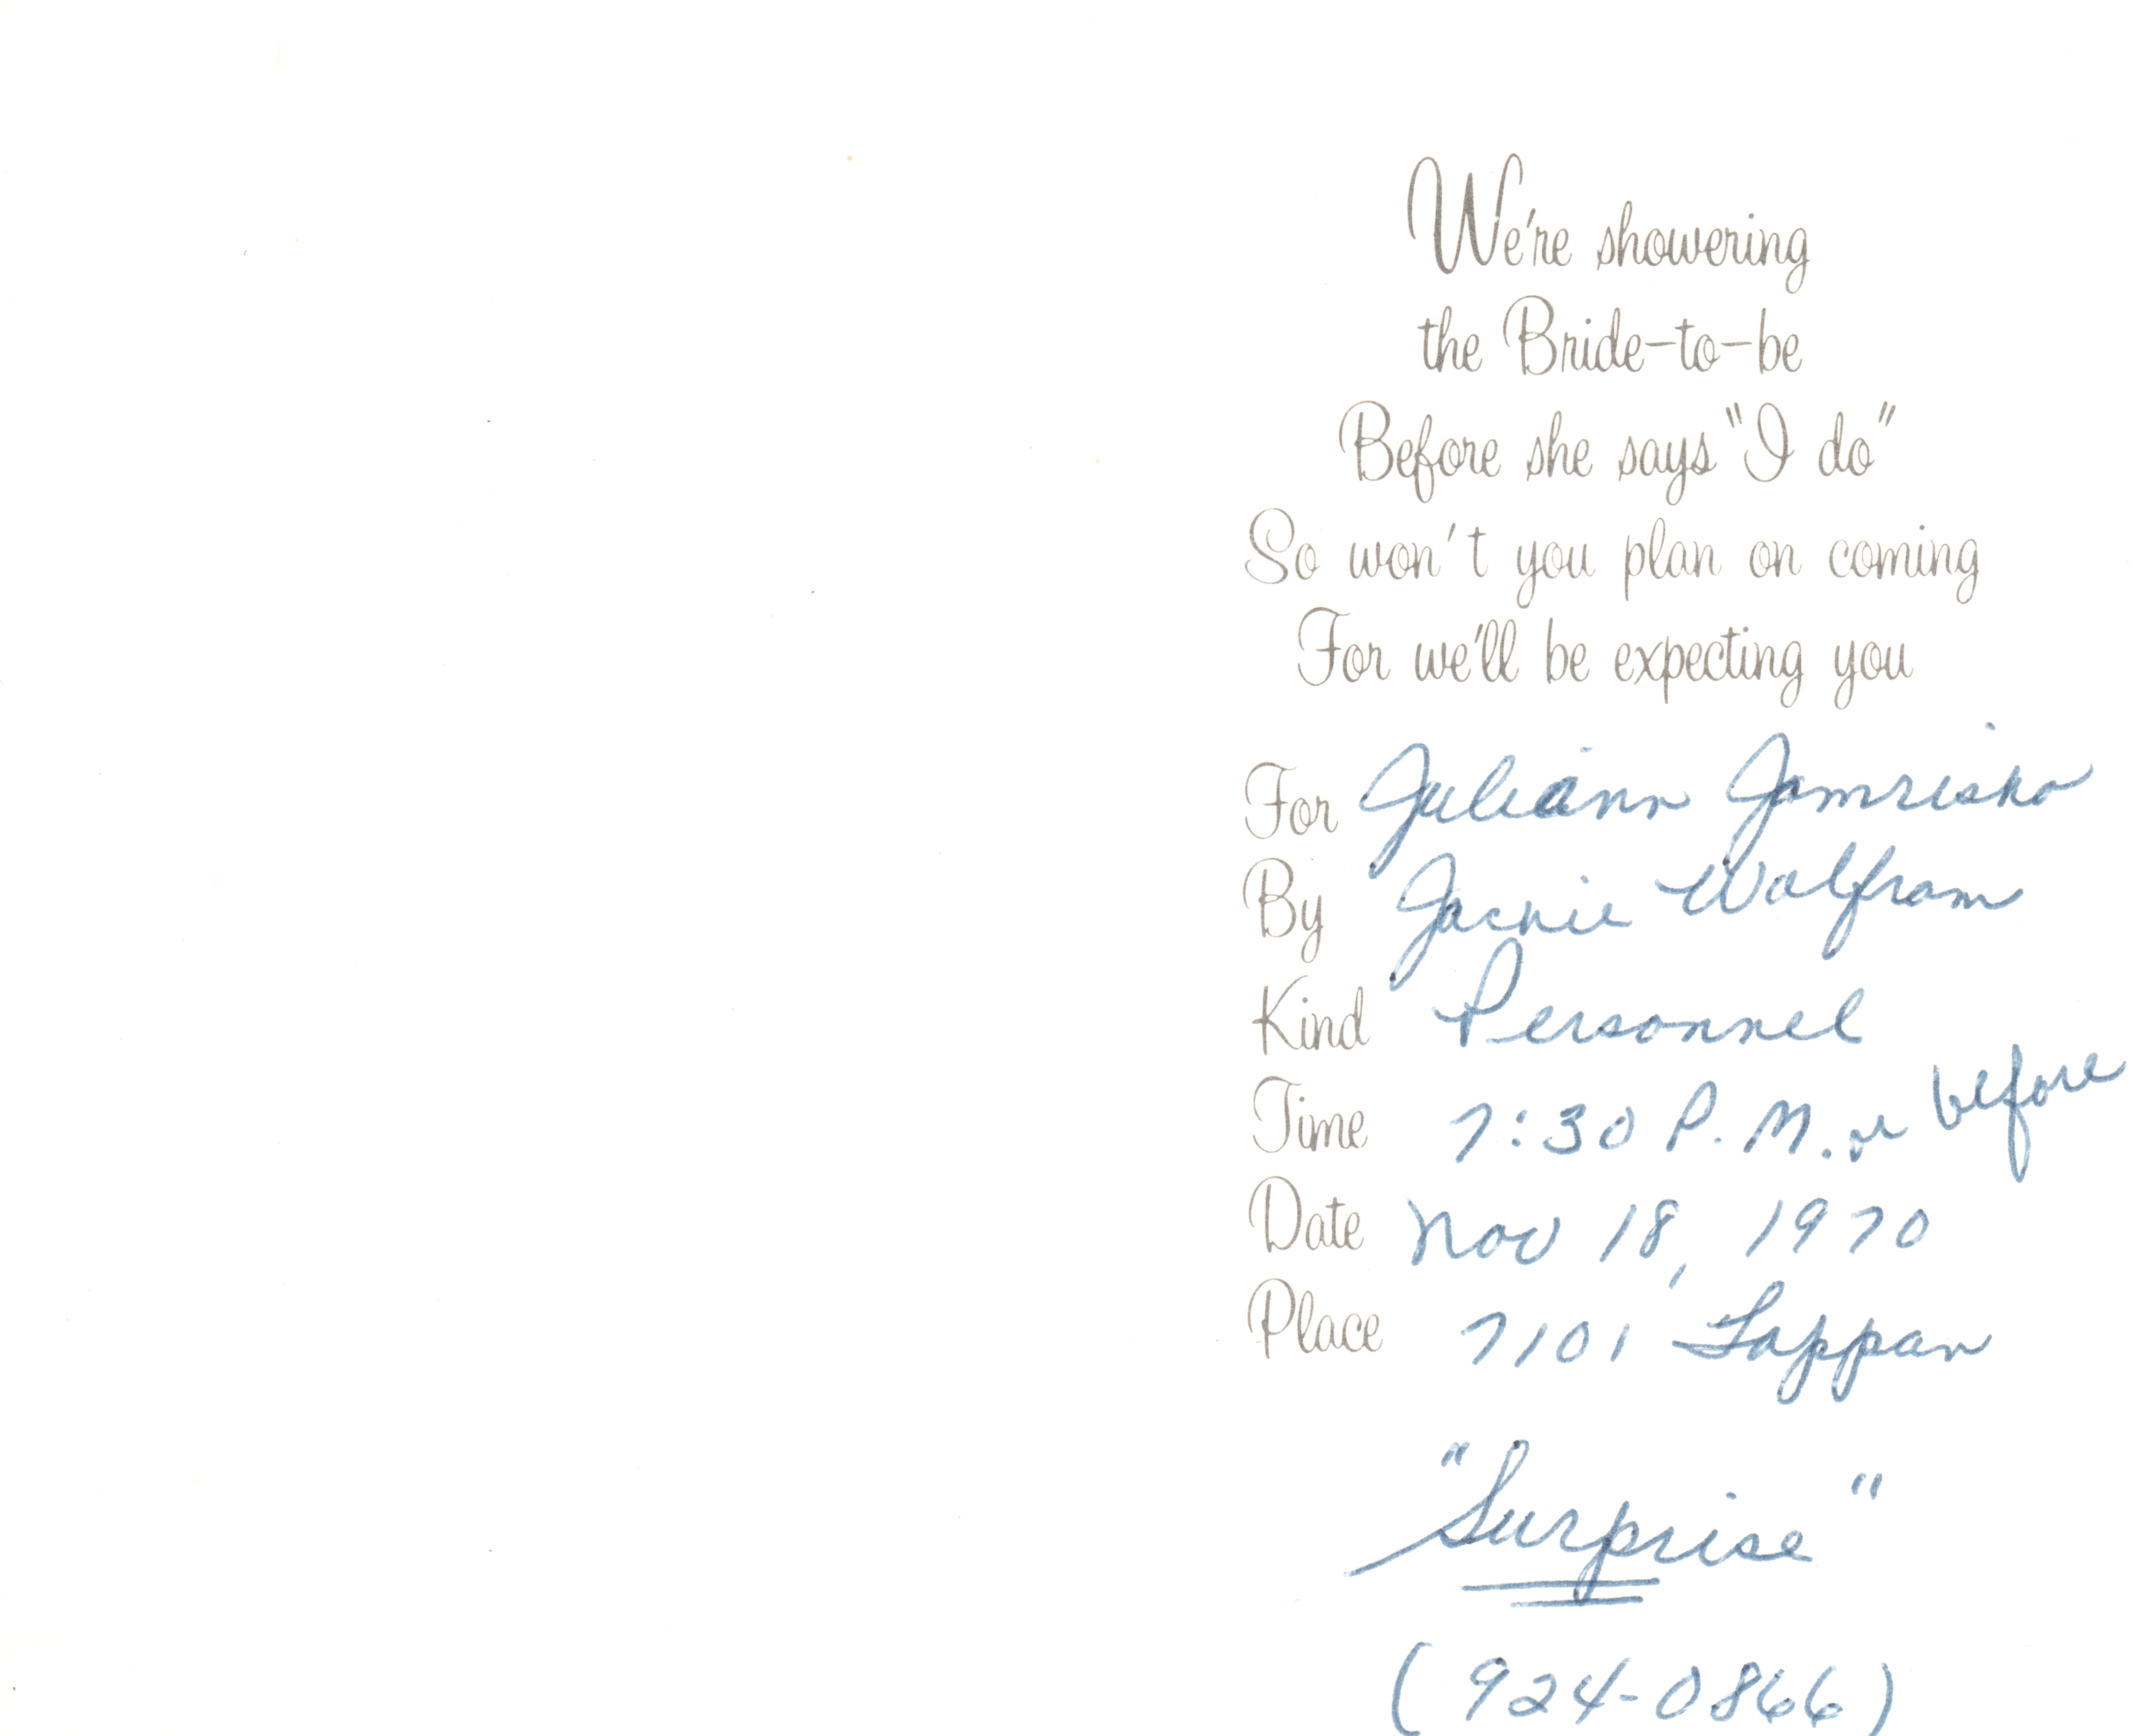 We're showering
the Bride-to-be
Before she says "I do"
So won't you plan on coming
For we'll be expecting you
For Juliann Jamriska
By Jackie Wolfram
Kind Personnel
Time 7:30 P.M. or before
Date Nov 18, 1970
Place 7101 Tappan
"Surprise"
(924-0866)